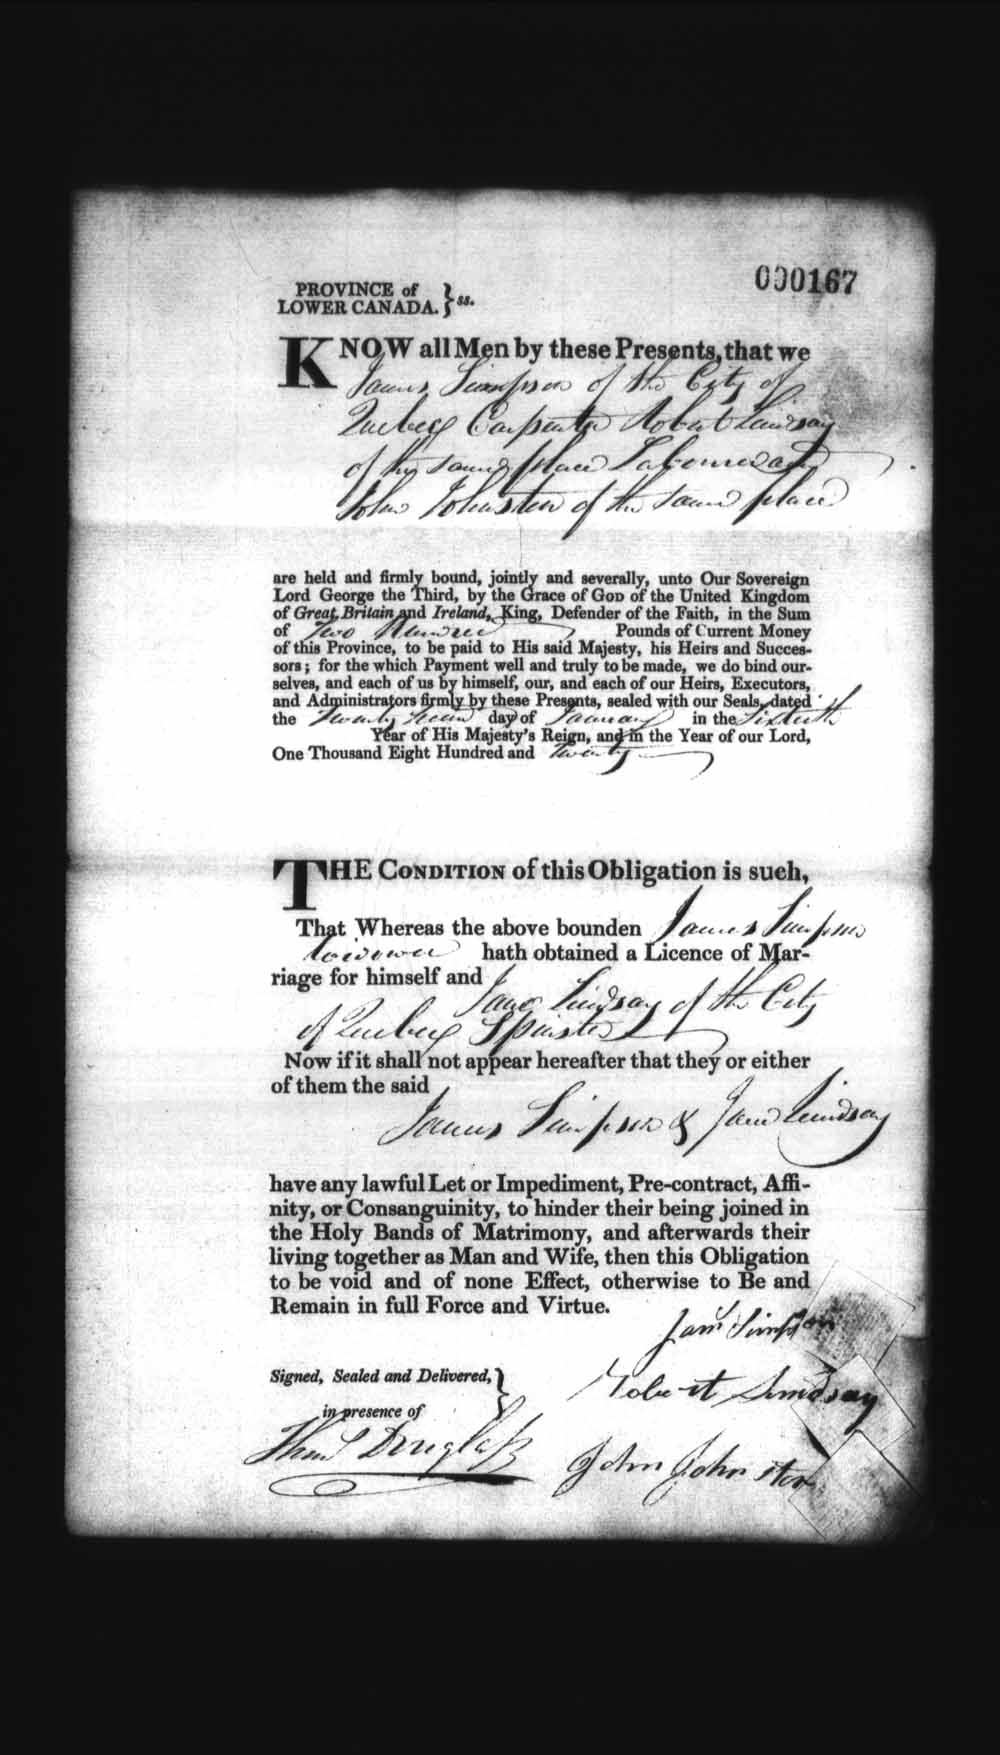 000167
PROVINCE of
LOWER CANADA. } ss.
KNOW all Men by these Presents, that we
James Simpson of the City of
Quebec Carpenter Robert Lindsay
of the same place Labourer and
John Johnston of the same place
are held and firmly bound, jointly and severally, unto Our Sovereign
Lord George the Third, by the Grace of GOD of the United Kingdom
of Great Britain and Ireland, King, Defender of the Faith, in the Sum
of Two Hundred Pounds of Current Money
of this Province, to be paid to His said Majesty, his Heirs and Succes-
sors; for the which Payment well and truly to be made, we do bind our-
selves, and each of us by himself, our, and each of our Heirs, Executors,
and Administrators firmly by these Presents, sealed with our Seals, dated
the Twenty day of January in the Sixtieth
Year of His Majesty's Reign, and in the Year of our Lord,
One Thousand Eight Hundred and twenty
THE CONDITION of this Obligation is such,
That Whereas the above bounden James Simpson
Widower hath obtained a Licence of Mar-
riage for himself and
Jane Lindsay of the City
of Quebec Spinster
Now if it shall not appear hereafter that they or either
of them the said
James Simpson & Jane Lindsay
have any lawful Let or Impediment, Pre-contract, Affi-
nity, or Consanguinity, to hinder their being joined in
the Holy Bands of Matrimony, and afterwards their
living together as Man and Wife, then this Obligation
to be void and of none Effect, otherwise to Be and
Remain in full Force and Virtue.
Jams Simpson
Signed, Sealed and Delivered, }
Robert Lindsay
in presence of
Thos Douglass
John Johnston